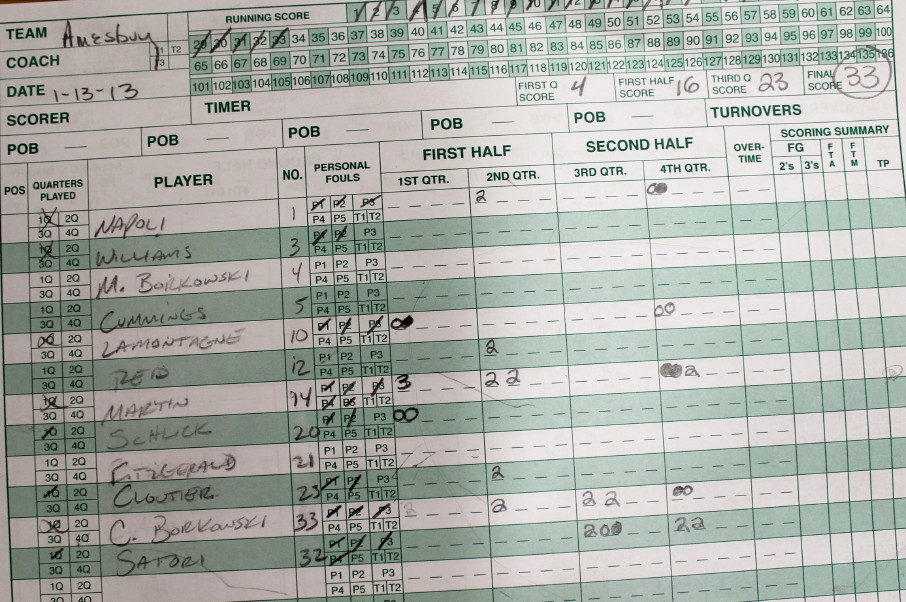 TEAM Amesbury
COACH T1 T2 T3
DATE 1-13-13
SCORER
RUNNING SCORE 1 2 3 4 5 6 7 8 9 10 11 12
29 30 31 32 33 34 35 36 37 38 39 40 41 42 43 44 45 46 47 48 49 50 51 52 53 54 55 56 57 58 59 60 61 62 63 64
65 66 67 68 69 70 71 72 73 74 75 76 77 78 79 80 81 82 83 84 85 86 87 88 89 90 91 92 93 94 95 96 97 98 99 100
101 102 103 104 105 106 107 108 109 110 111 112 113 114 115 116 117 118 119 120 121 122 123 124 125 126 127 128 129 130 131 132 133 134 135 136
FIRST Q SCORE 4 FIRST HALF SCORE 16 THIRD Q SCORE 23 FINAL SCORE 33
TIMER
POB — POB — POB — POB — POB — TURNOVERS
POS QUARTERS PLAYED PLAYER NO. PERSONAL FOULS FIRST HALF SECOND HALF OVER-TIME SCORING SUMMARY
1ST QTR. 2ND QTR. 3RD QTR. 4TH QTR. FG 2's 3's FTA FTM TP
1Q 2Q 3Q 4Q NAPOLI 1 P1 P2 P3 P4 P5 T1 T2 2 00
1Q 2Q 3Q 4Q WILLIAMS 3 P1 P2 P3 P4 P5 T1 T2
1Q 2Q 3Q 4Q M. BORKOWSKI 4 P1 P2 P3 P4 P5 T1 T2
1Q 2Q 3Q 4Q CUMMINGS 5 P1 P2 P3 P4 P5 T1 T2 00
3Q 4Q LAMONTAGNE 10 P1 P2 P3 P4 P5 T1 T2 00
1Q 2Q 3Q 4Q REID 12 P1 P2 P3 P4 P5 T1 T2 2
1Q 2Q 3Q 4Q MARTIN 14 P1 P2 P3 P4 P5 T1 T2 3 2 2 2
1Q 2Q 3Q 4Q SCHLICK 20 P1 P2 P3 P4 P5 T1 T2 00
1Q 2Q 3Q 4Q FITZGERALD 21 P1 P2 P3 P4 P5 T1 T2
1Q 2Q 3Q 4Q CLOUTIER 23 P1 P2 P3 P4 P5 T1 T2 2
1Q 2Q 3Q 4Q C. BORKOWSKI 33 P1 P2 P3 P4 P5 T1 T2 2 2 2 2 00
1Q 2Q 3Q 4Q SATORI 32 P1 P2 P3 P4 P5 T1 T2 2 0 0 2 2
1Q 2Q 3Q 4Q P1 P2 P3 P4 P5 T1 T2